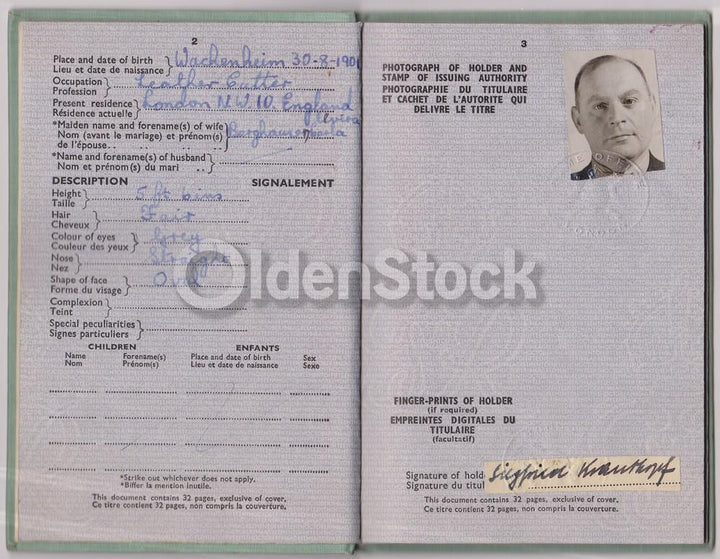 2
Place and date of birth } Wachenheim 30-8-1901
Lieu et date de naissance
Occupation } Leather Cutter
Profession
Present residence } London N.W.10. England
Résidence actuelle
*Maiden name and forename(s) of wife
Nom (avant le mariage) et prénom(s)
de l'épouse
*Name and forename(s) of husband
Nom et prénom(s) du mari
DESCRIPTION SIGNALEMENT
Height } 5 ft 6 ins
Taille
Hair } Fair
Cheveux
Colour of eyes } Grey
Couleur des yeux
Nose } Straight
Nez
Shape of face } Oval
Forme du visage
Complexion
Teint
Special peculiarities
Signes particuliers
CHILDREN ENFANTS
Name Forename(s) Place and date of birth Sex
Nom Prénom(s) Lieu et date de naissance Sexe
*Strike out whichever does not apply.
*Biffer la mention inutile.
This document contains 32 pages, exclusive of cover.
Ce titre contient 32 pages, non compris la couverture.
3
PHOTOGRAPH OF HOLDER AND
STAMP OF ISSUING AUTHORITY
PHOTOGRAPHIE DU TITULAIRE
ET CACHET DE L'AUTORITE QUI
DELIVRE LE TITRE
LONDON
OldenStock
FINGER-PRINTS OF HOLDER
(if required)
EMPREINTES DIGITALES DU
TITULAIRE
(facultatif)
Signature of hold Siegfried Krautkopf
Signature du titul
This document contains 32 pages, exclusive of cover.
Ce titre contient 32 pages, non compris la couverture.